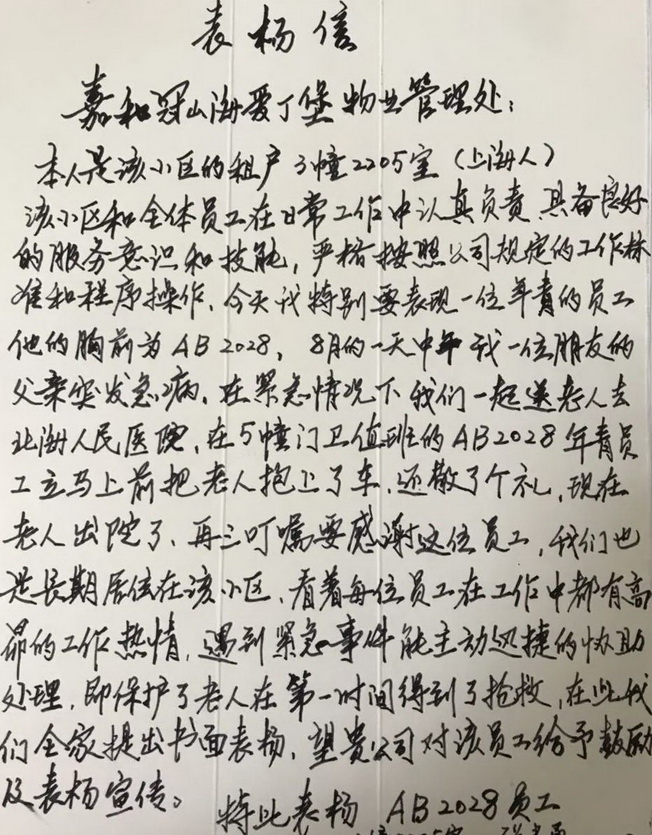 表杨信
嘉和冠山海爱丁堡物业管理处：
本人是该小区的租户3幢2205室（上海人）
该小区和全体员工在日常工作中认真负责具备良好
的服务意识和技能，严格按照公司规定的工作标
准和程序操作，今天我特别要表现一位年青的员工
他的胸前为AB2028，8月的一天中午我一位朋友的
父亲突发急病，在紧急情况下我们一起送老人去
北海人民医院，在5幢门卫值班的AB2028年青员
工立马上前把老人抱上了车，还敬了个礼，现在
老人出院了，再三叮嘱要感谢这位员工，我们也
是长期居住在该小区，看着每位员工在工作中都有高
昂的工作热情，遇到紧急事件能主动迅捷的协助
处理，即保护了老人在第一时间得到了抢救，在此我
们全家提出书面表杨，望贵公司对该员工给予鼓励
及表杨宣传。
特此表杨 AB2028员工